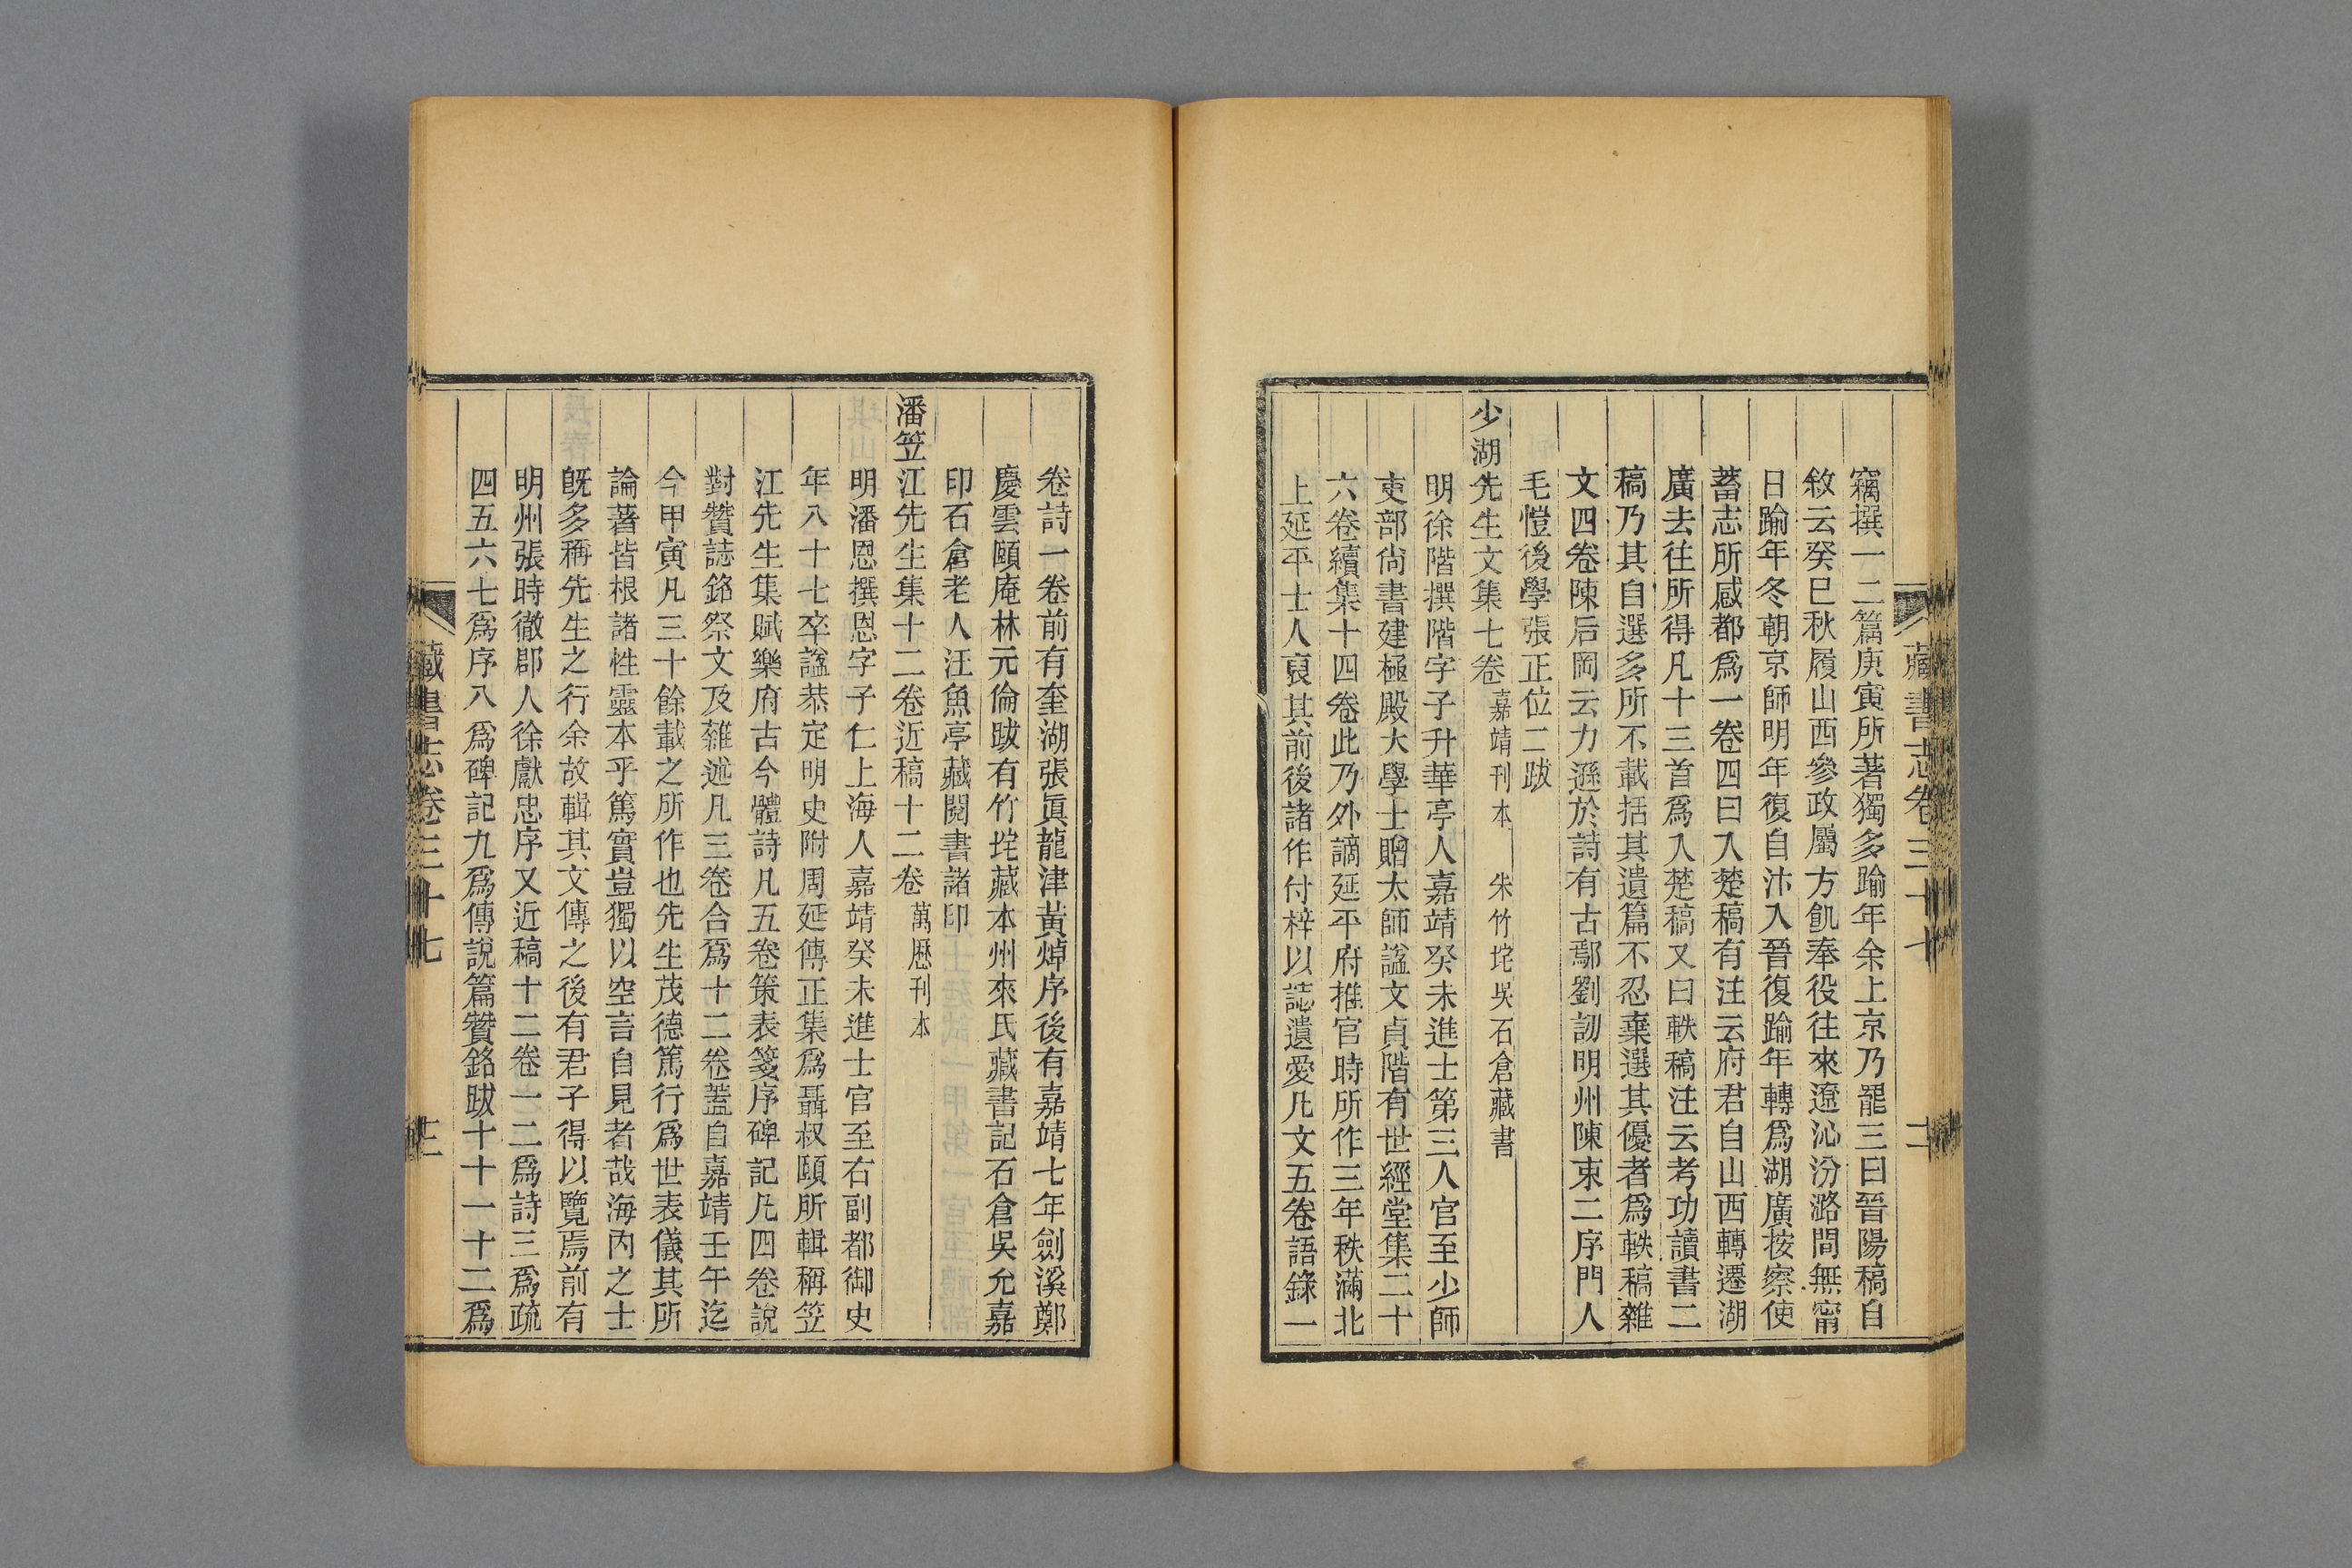 藏書志卷三十七 二
竊撰一二篇庚寅所著獨多踰年余上京乃罷三曰晉陽稿自
敘云癸巳秋履山西參政屬方飢奉役往來遼沁汾潞間無甯
日踰年冬朝京師明年復自汴入晉復踰年轉爲湖廣按察使
蓄志所感都爲一卷四曰入楚稿有注云府君自山西轉遷湖
廣去往所得凡十三首爲入楚稿又曰軼稿注云考功讀書二
稿乃其自選多所不載括其遺篇不忍棄選其優者爲軼稿雜
文四卷陳后岡云力遜於詩有古鄢劉訒明州陳束二序門人
毛愷後學張正位二跋
少湖先生文集七卷 嘉靖刊本 朱竹垞吳石倉藏書
明徐階撰階字子升華亭人嘉靖癸未進士第三人官至少師
吏部尙書建極殿大學士贈太師謚文貞階有世經堂集二十
六卷續集十四卷此乃外謫延平府推官時所作三年秩滿北
上延平士人裒其前後諸作付梓以誌遺愛凡文五卷語錄一
卷詩一卷前有奎湖張眞龍津黃焯序後有嘉靖七年劍溪鄭
慶雲頤庵林元倫跋有竹垞藏本州來氏藏書記石倉吳允嘉
印石倉老人汪魚亭藏閱書諸印
潘笠江先生集十二卷近稿十二卷 萬歷刊本
明潘恩撰恩字子仁上海人嘉靖癸未進士官至右副都御史
年八十七卒謚恭定明史附周延傳正集爲聶叔頤所輯稱笠
江先生集賦樂府古今體詩凡五卷策表箋序碑記凡四卷說
對贊誌銘祭文及雜述凡三卷合爲十二卷蓋自嘉靖壬午迄
今甲寅凡三十餘載之所作也先生茂德篤行爲世表儀其所
論著皆根諸性靈本乎篤實豈獨以空言自見者哉海內之士
旣多稱先生之行余故輯其文傳之後有君子得以覽焉前有
明州張時徹郡人徐獻忠序又近稿十二卷一二爲詩三爲疏
四五六七爲序八爲碑記九爲傳說篇贊銘跋十十一十二爲
藏書志卷三十七